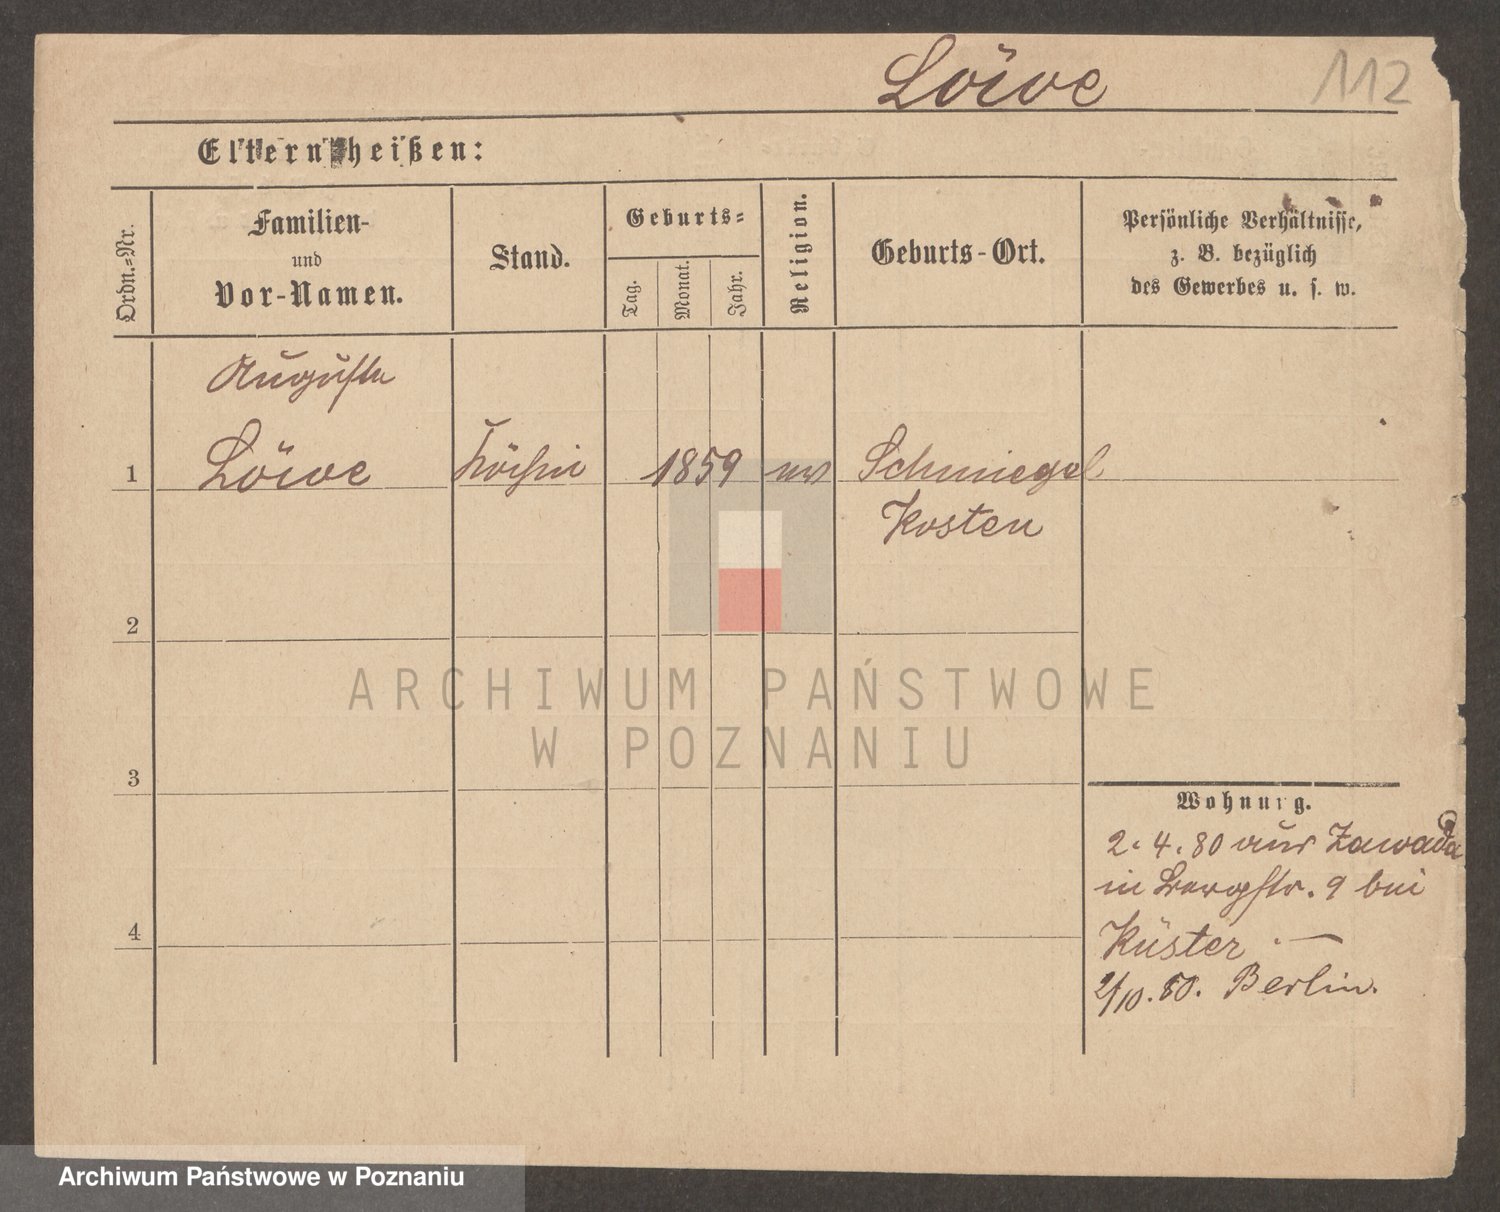 Löwe 112
Eltern heißen:
Ordn.=Nr.
Familien-
und
Vor-Namen.
Stand.
Geburts=
Tag.
Monat.
Jahr.
Religion.
Geburts-Ort.
Persönliche Verhältnisse,
z. B. bezüglich
des Gewerbes u. s. w.
Auguste
1 Löwe Köchin 1859 ev Schmiegel
Kosten
2
3
4
Wohnung.
2. 4. 80 aus Zawada
in Bergstr. 9 bei
Küster. —
2/10. 80. Berlin.
ARCHIWUM PAŃSTWOWE
W POZNANIU
Archiwum Państwowe w Poznaniu